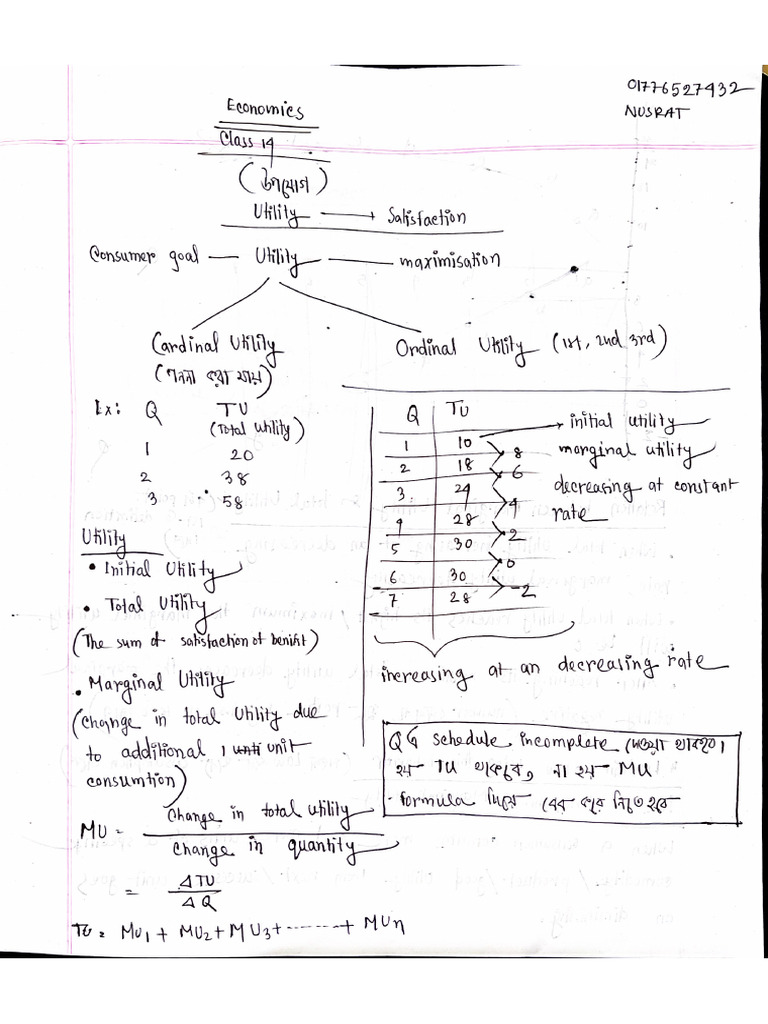 01776527432
NUSRAT
Economics
Class 14
(উপযোগ)
Utility → Satisfaction
Consumer goal — Utility — maximisation
Cardinal Utility
(গননা করা যায়)
Ex: Q TU
(Total Utility)
1 20
2 38
3 58
Utility
• Initial Utility
• Total Utility
(The sum of satisfaction of benifit)
• Marginal Utility
(change in total Utility due
to additional 1 unit
consumtion)
MU = Change in total utility
change in quantity
= ΔTU
ΔQ
TU = MU1 + MU2 + MU3 + ------- + MUn
Ordinal Utility (1st, 2nd 3rd)
Q TU
1 10 → initial utility
2 18
3 24
4 28
5 30
6 30
7 28
8
6
4
2
0
-2
marginal utility
decreasing at constant
rate
increasing at an decreasing rate
QG schedule incomplete দেওয়া থাকবে।
হয় TU থাকবে, না হয় MU
- formula দিয়ে বের করে নিতে হবে